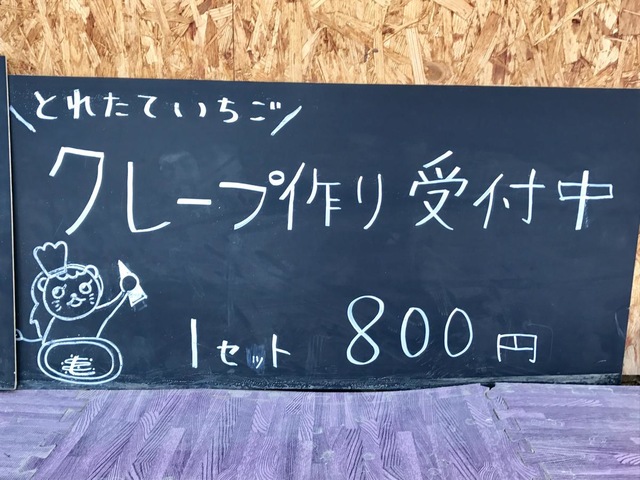 \とれたていちご/
クレープ作り受付中
1セット 800円